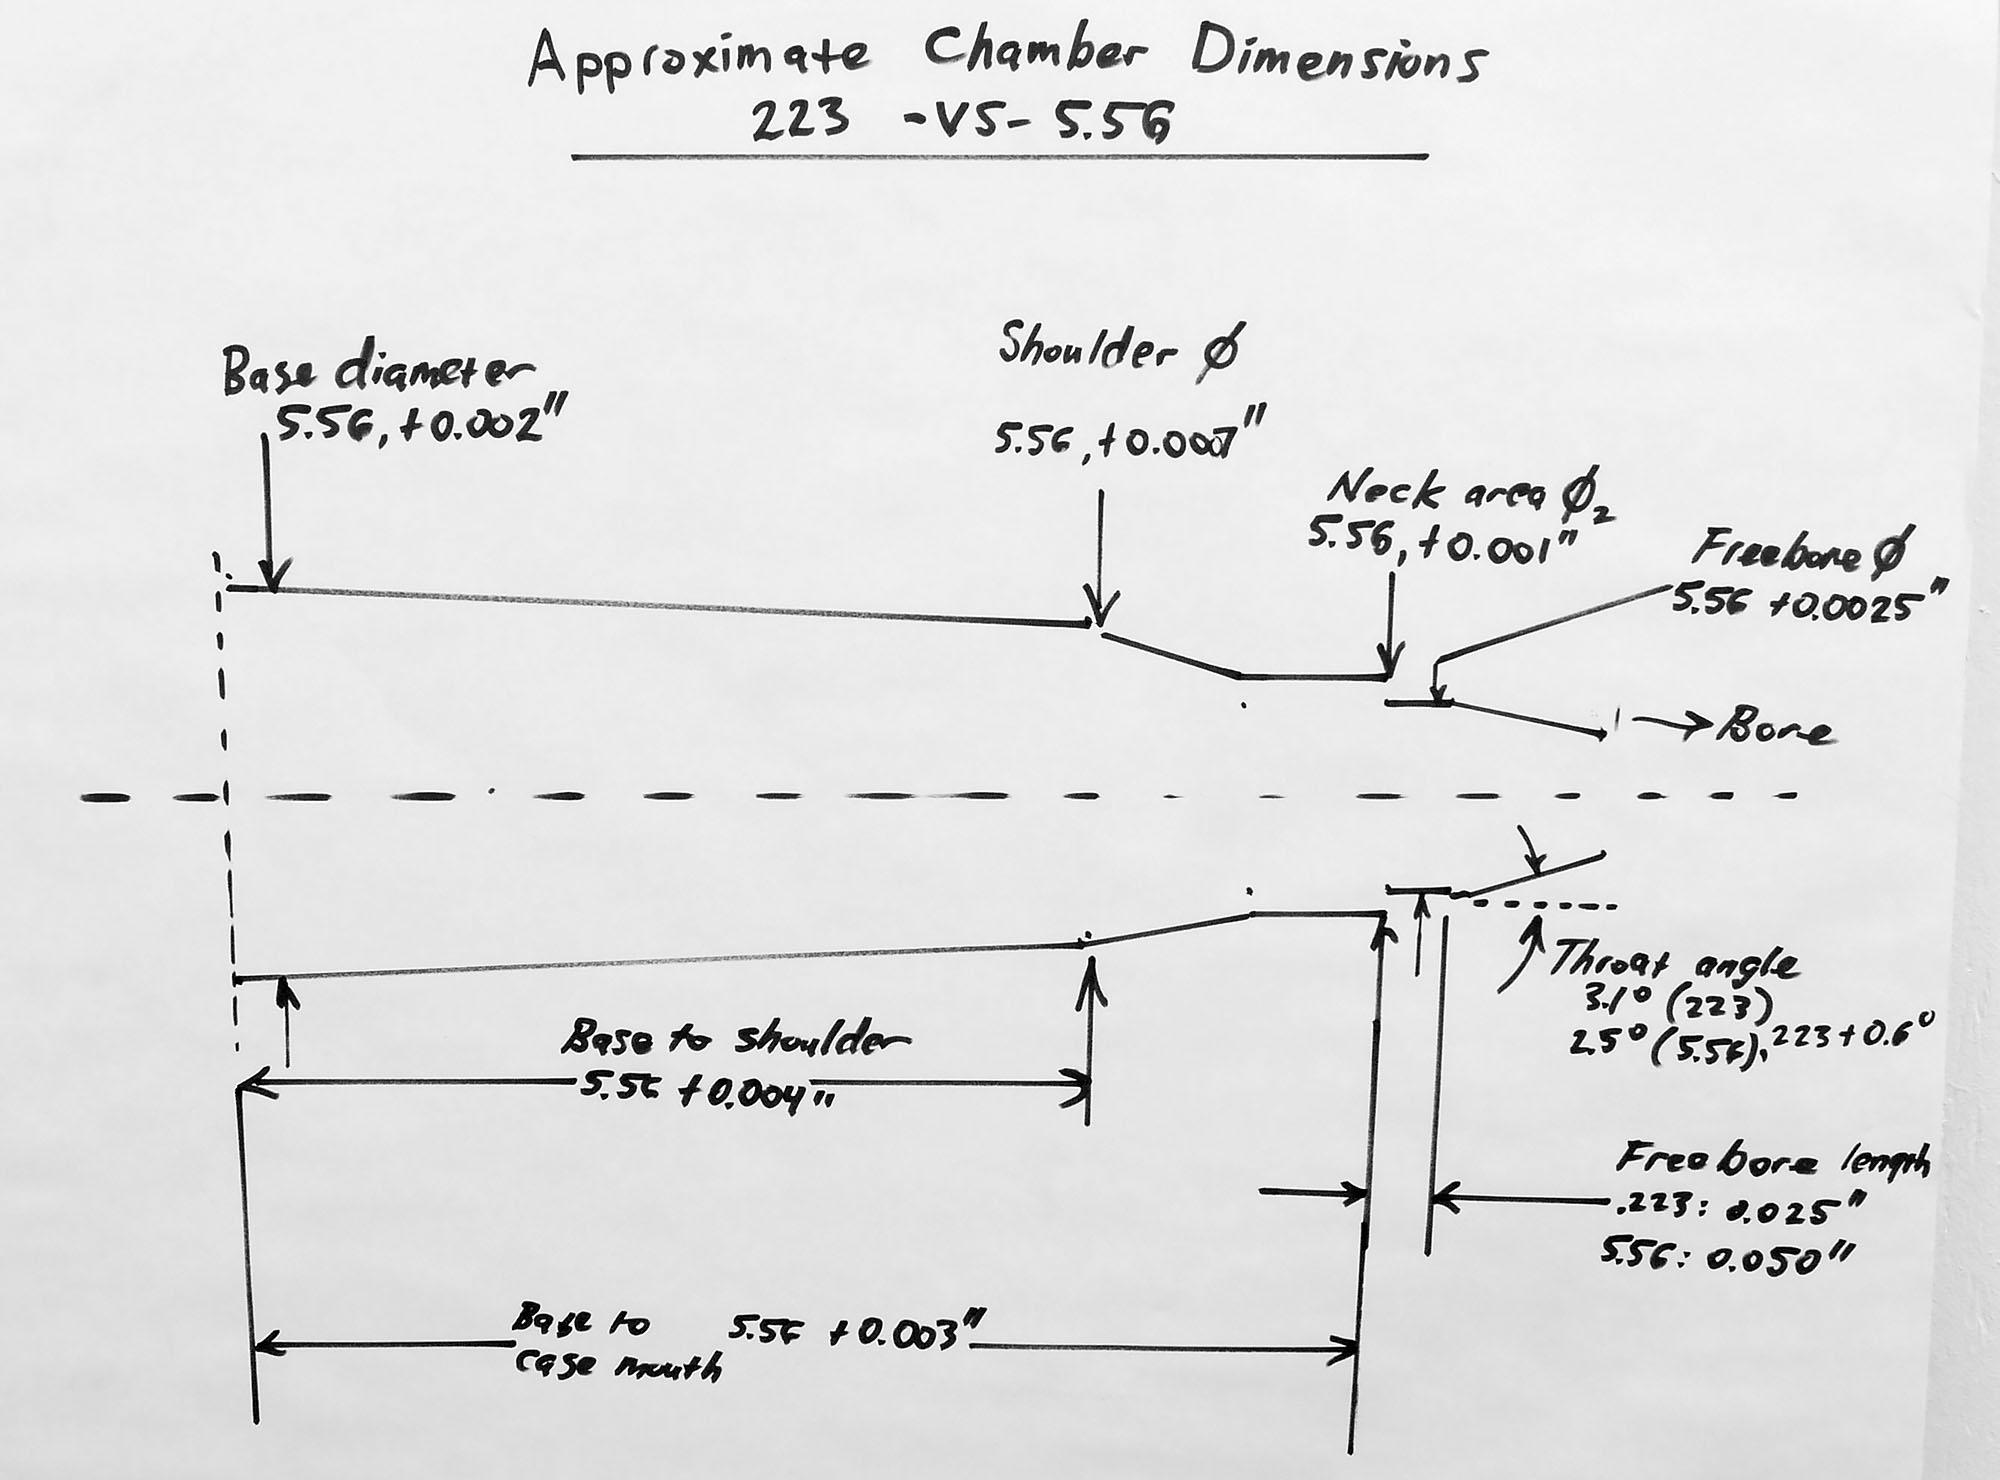 Approximate Chamber Dimensions
223 -VS- 5.56
Base diameter
5.56, +0.002"
Shoulder ∅
5.56, +0.0007"
Neck area ∅2
5.56, +0.001"
Freebore ∅
5.56 +0.0025"
Bore
Throat angle
3.1° (223)
2.5° (5.56), 223 + 0.6°
Base to shoulder
5.56 +0.004"
Freebore length
.223: 0.025"
5.56: 0.050"
Base to 5.56 +0.003"
case mouth